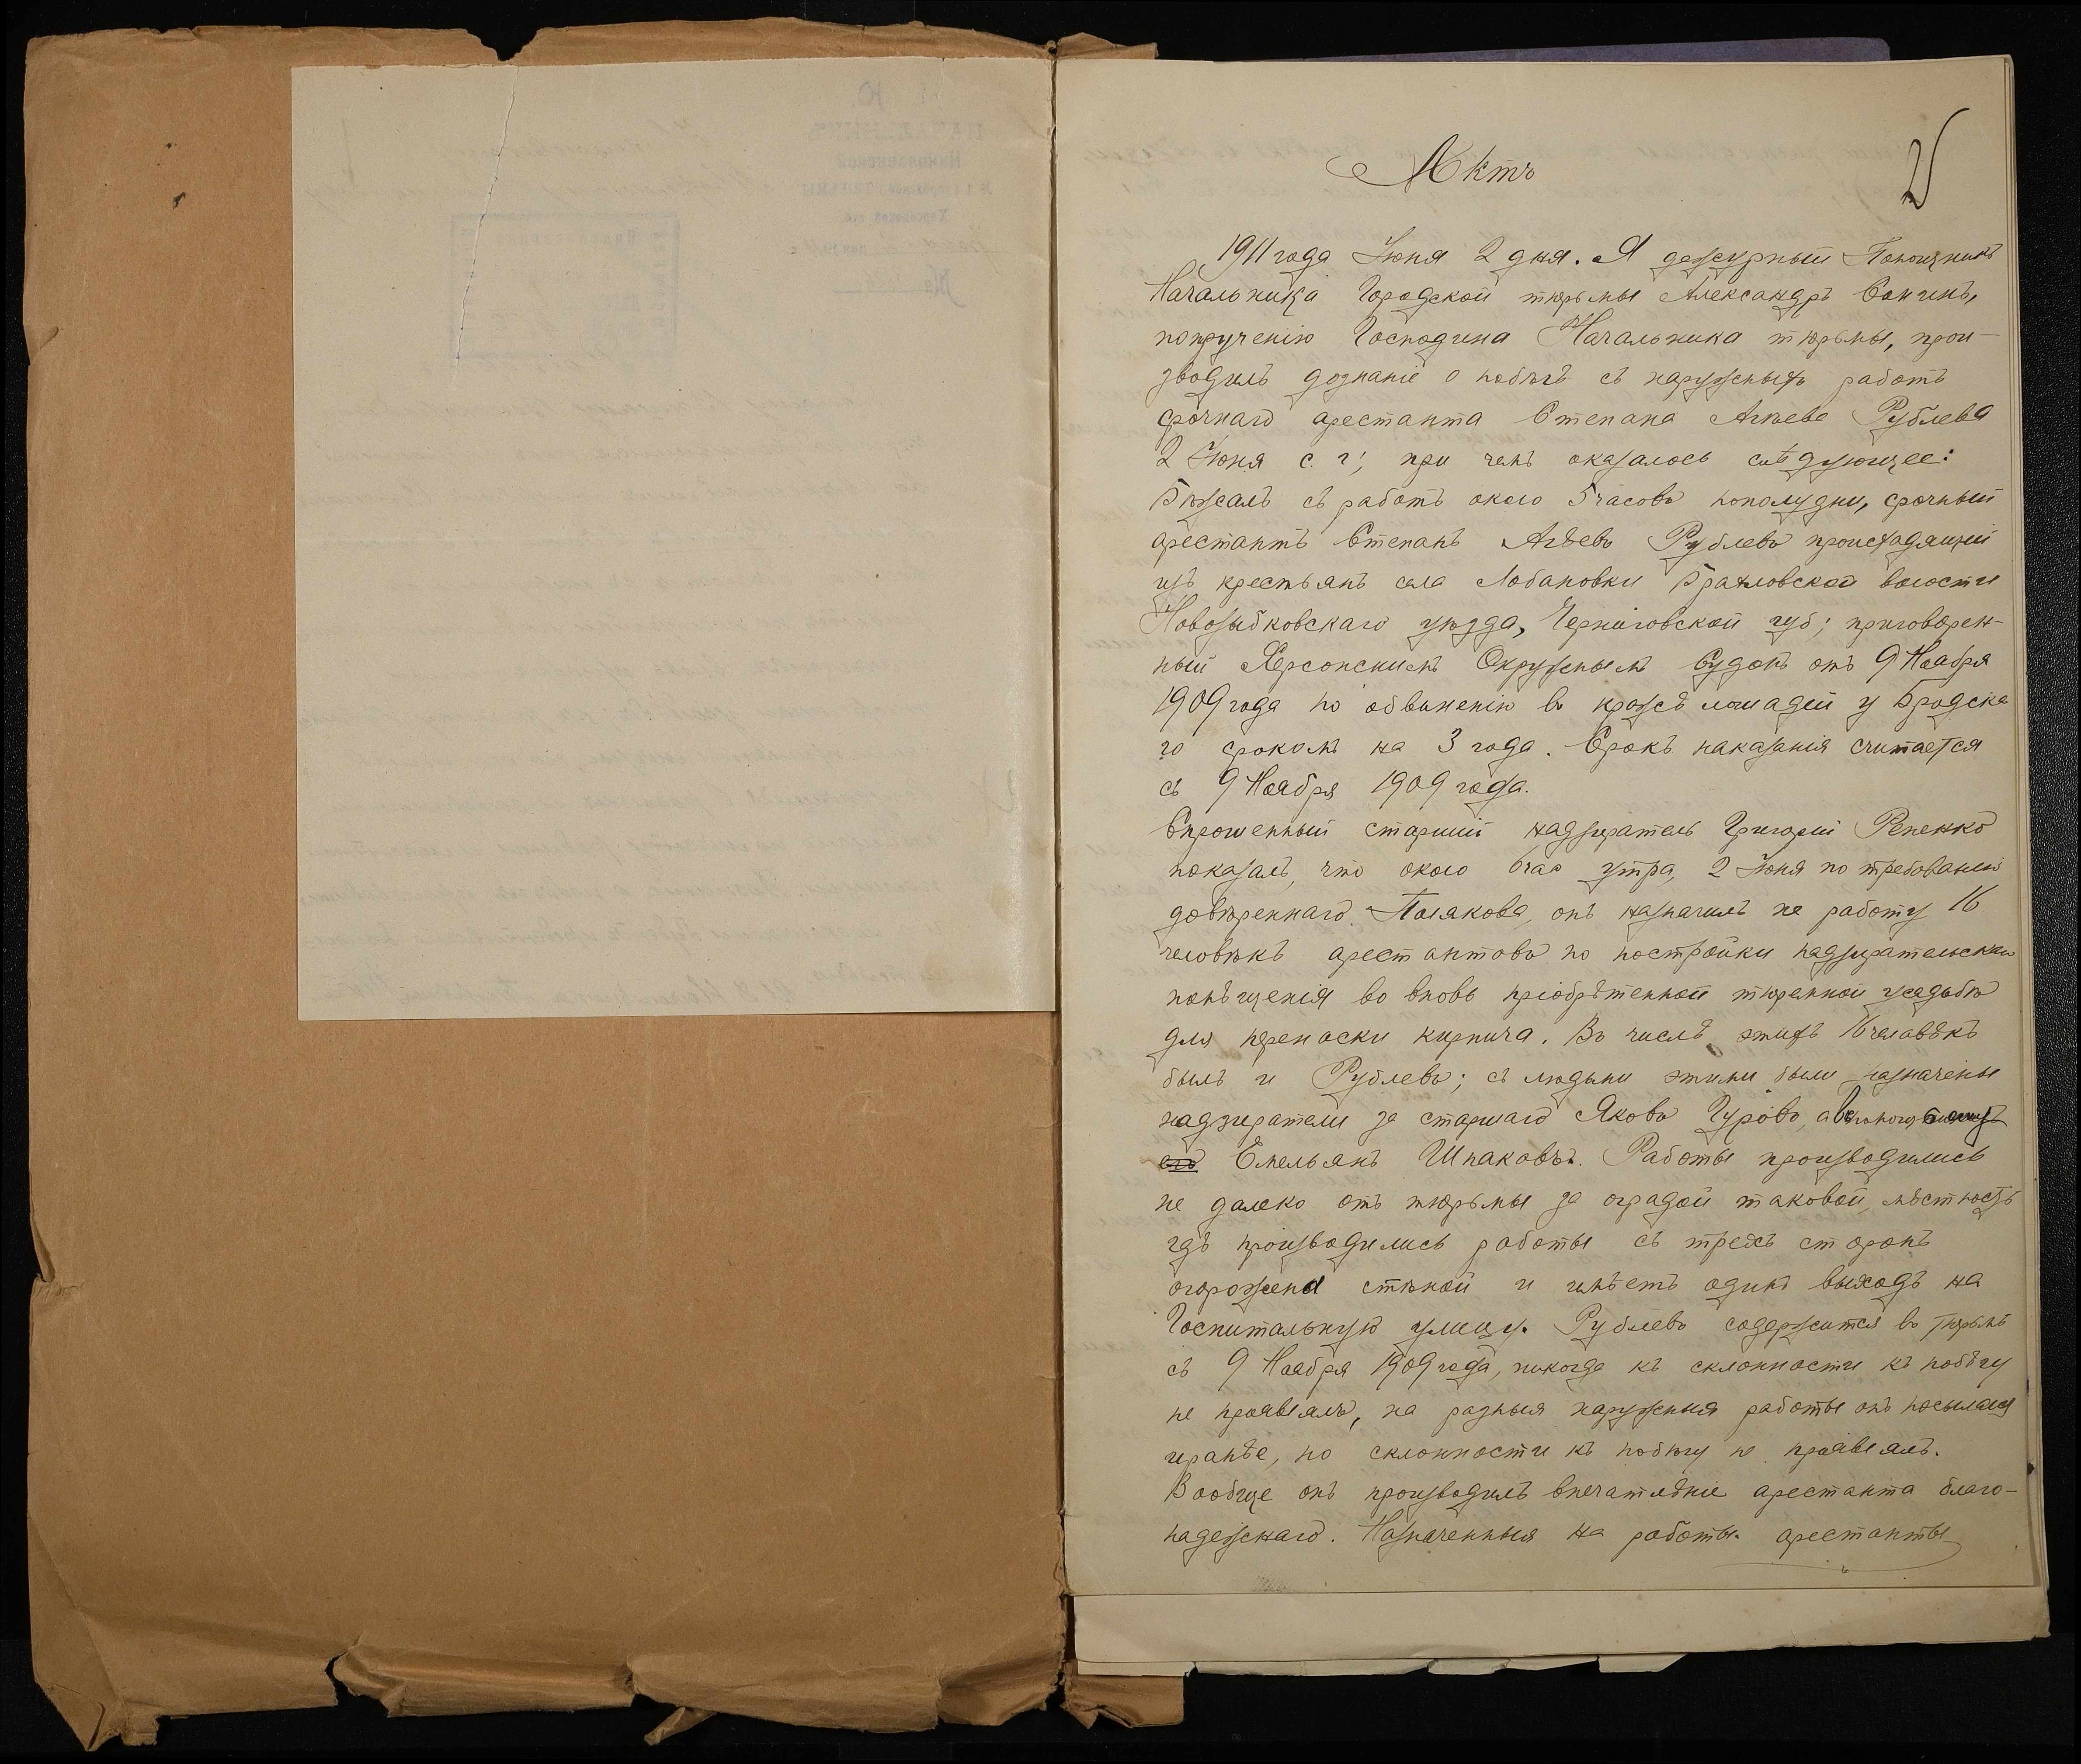 Актъ
2
1911 года Іюня 2 дня. Я дежурный Помощникъ
Начальника Городской тюрьмы Александръ
порученію Господина Начальника тюрьмы, прои-
зводилъ дознаніе о побѣгѣ съ наружныхъ работъ
срочнаго арестанта Степана Агѣева Рублева
2 Іюня с. г., при чемъ оказалось слѣдующее:
Бѣжалъ съ работъ около 5 часовъ пополудни, срочный
арестантъ Степанъ Агѣевъ Рублевъ происходящій
изъ крестьянъ села Лобановки волости
Новозыбковскаго уѣзда, Черниговской губ; приговорен-
ный Херсонскимъ Окружнымъ Судомъ отъ 9 Ноября
1909 года по обвиненію въ кражѣ лошадей у Бродска
го срокомъ на 3 года. Срокъ наказанія считается
съ 9 Ноября 1909 года.
Спрошенный старшій надзиратель Григорій Репенко
показалъ, что около 6 час утра, 2 Іюня по требованію
довѣреннаго Полякова, онъ назначилъ на работу 16
человѣкъ арестантовъ по постройки надзирательскаго
помѣщенія во вновь пріобрѣтенной тюремной усадьбѣ
для переноски кирпича. Въ числѣ этихъ 16 человѣкъ
былъ и Рублевъ; съ людьми этими были назначены
надзиратели за старшаго Яковъ Гуровъ, а
Емельянъ Шпаковъ. Работы производились
не далеко отъ тюрьмы за оградой таковой, мѣстность
гдѣ производились работы съ трехъ сторонъ
огорожена стѣной и имѣетъ одинъ выходъ на
Госпитальную улицу. Рублевъ содержится въ тюрьмѣ
съ 9 Ноября 1909 года, никогда къ склонности къ побѣгу
не проявлялъ, на разныя наружныя работы онъ посылался
и ранѣе, но склонности къ побѣгу не проявлялъ.
Вообще онъ производилъ впечатлѣніе арестанта благо-
надежнаго. Назначенныя на работы арестанты